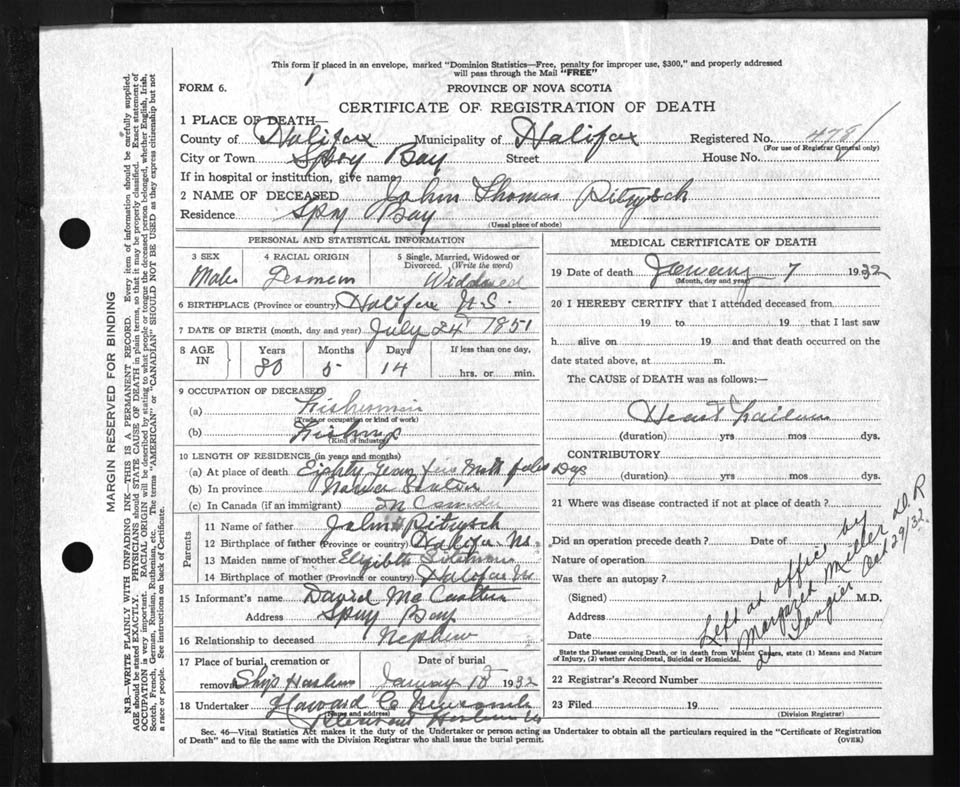 This form if placed in an envelope, marked "Dominion Statistics—Free, penalty for improper use, $300," and properly addressed
will pass through the Mail "FREE"
FORM 6.
PROVINCE OF NOVA SCOTIA
CERTIFICATE OF REGISTRATION OF DEATH
1 PLACE OF DEATH—
County of Halifax Municipality of Halifax Registered No. 4781
(For use of Registrar General only)
City or Town Spry Bay Street House No.
If in hospital or institution, give name
2 NAME OF DECEASED John Thomas
Residence Spry Bay
(Usual place of abode)
PERSONAL AND STATISTICAL INFORMATION
3 SEX 4 RACIAL ORIGIN 5 Single, Married, Widowed or
Divorced. (Write the word)
Male Widowed
6 BIRTHPLACE (Province or country) Halifax N.S.
7 DATE OF BIRTH (month, day and year) July 24 1851
8 AGE IN Years Months Days If less than one day,
80 5 14 hrs. or min.
9 OCCUPATION OF DECEASED
(a) Fisherman
(Trade or occupation or kind of work)
(b) Fishing
(Kind of industry)
10 LENGTH OF RESIDENCE (in years and months)
(a) At place of death Eighty Days
(b) In province
(c) In Canada (if an immigrant)
Parents
11 Name of father John
12 Birthplace of father (Province or country) Halifax Ns.
13 Maiden name of mother
14 Birthplace of mother (Province or country) Halifax Ns
15 Informant's name David
Address Spry Bay
16 Relationship to deceased Nephew
17 Place of burial, cremation or Date of burial
removal Ship January 1932
18 Undertaker Howard
(Name and address)
MEDICAL CERTIFICATE OF DEATH
19 Date of death January 7 1932
(Month, day and year)
20 I HEREBY CERTIFY that I attended deceased from
19 to 19 that I last saw
h alive on 19 and that death occurred on the
date stated above, at m.
The CAUSE of DEATH was as follows:—
Heart Failure
(duration) yrs mos dys.
CONTRIBUTORY
(duration) yrs mos dys.
21 Where was disease contracted if not at place of death?
Did an operation precede death? Date of
Nature of operation
Was there an autopsy?
(Signed) M.D.
Address
Date
Left at office by
Margaret Miller D.R
Tangier Oct 29/32
State the Disease causing Death, or in death from Violent Causes, state (1) Means and Nature
of Injury, (2) whether Accidental, Suicidal or Homicidal.
22 Registrar's Record Number
23 Filed 19
(Division Registrar)
Sec. 46—Vital Statistics Act makes it the duty of the Undertaker or person acting as Undertaker to obtain all the particulars required in the "Certificate of Registration
of Death" and to file the same with the Division Registrar who shall issue the burial permit.
(OVER)
MARGIN RESERVED FOR BINDING
N.B.—WRITE PLAINLY WITH UNFADING INK—THIS IS A PERMANENT RECORD. Every item of information should be carefully supplied.
AGE should be stated EXACTLY. PHYSICIANS should STATE CAUSE OF DEATH in plain terms, so that it may be properly classified. Exact statement of
OCCUPATION is very important. RACIAL ORIGIN will be described by stating to what people or tongue the deceased person belonged, whether English, Irish,
Scotch, French, German, Russian, Ruthenian, etc. The terms "AMERICAN" or "CANADIAN" SHOULD NOT BE USED as they express citizenship but not
a race or people. See instructions on back of Certificate.